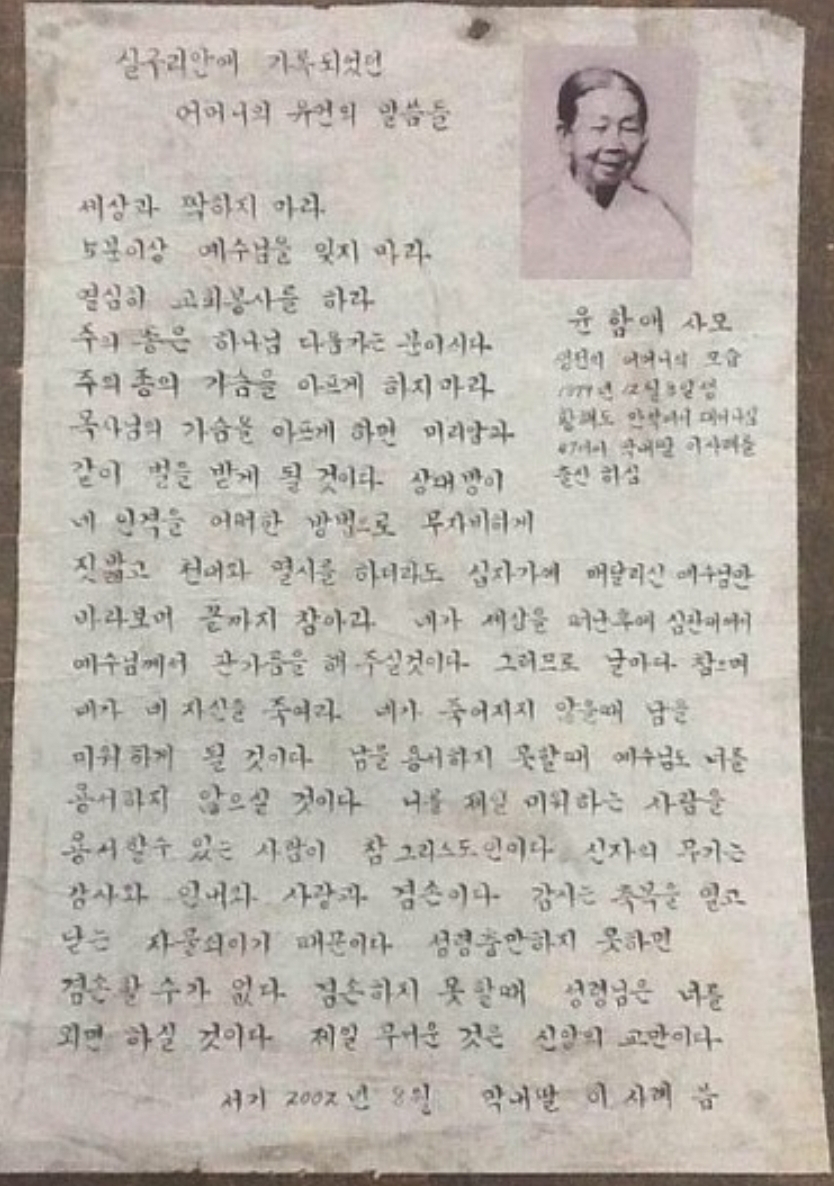 실구리안에 기록되었던
어머니의 유언의 말씀들
세상과 짝하지 마라
5분이상 예수님을 잊지 마라.
열심히 교회봉사를 하라
주의 종은 하나님 다음가는 분이시다.
주의 종의 가슴을 아프게 하지마라
목사님의 가슴을 아프게 하면 미리암과
같이 벌을 받게 될 것이다 상대방이
네 인격을 어떠한 방법으로 무자비하게
짓밟고 천대와 멸시를 하더라도 십자가에 매달리신 예수님만
바라보며 끝까지 참아라 네가 세상을 떠난후에 심판대에서
예수님께서 판가름을 해 주실것이다 그러므로 날마다 참으며
네가 네 자신을 죽여라 네가 죽어지지 않을때 남을
미워하게 될 것이다 남을 용서하지 못할때 예수님도 너를
용서하지 않으실 것이다 너를 제일 미워하는 사람을
용서할수 있는 사람이 참 그리스도인이다 신자의 무기는
감사와 인내와 사랑과 겸손이다 감사는 축복을 열고
닫는 자물쇠이기 때문이다 성령충만하지 못하면
겸손할 수가 없다 겸손하지 못할때 성령님은 너를
외면 하실 것이다 제일 무서운 것은 신앙의 교만이다.
서기 2002년 8월 막내딸 이 사례 씀
윤 함 애 사모
생전의 어머니의 모습
년 12월 3일생
황해도 안악에서 태어나심
47세에 막내딸 이사례를
출산 하심